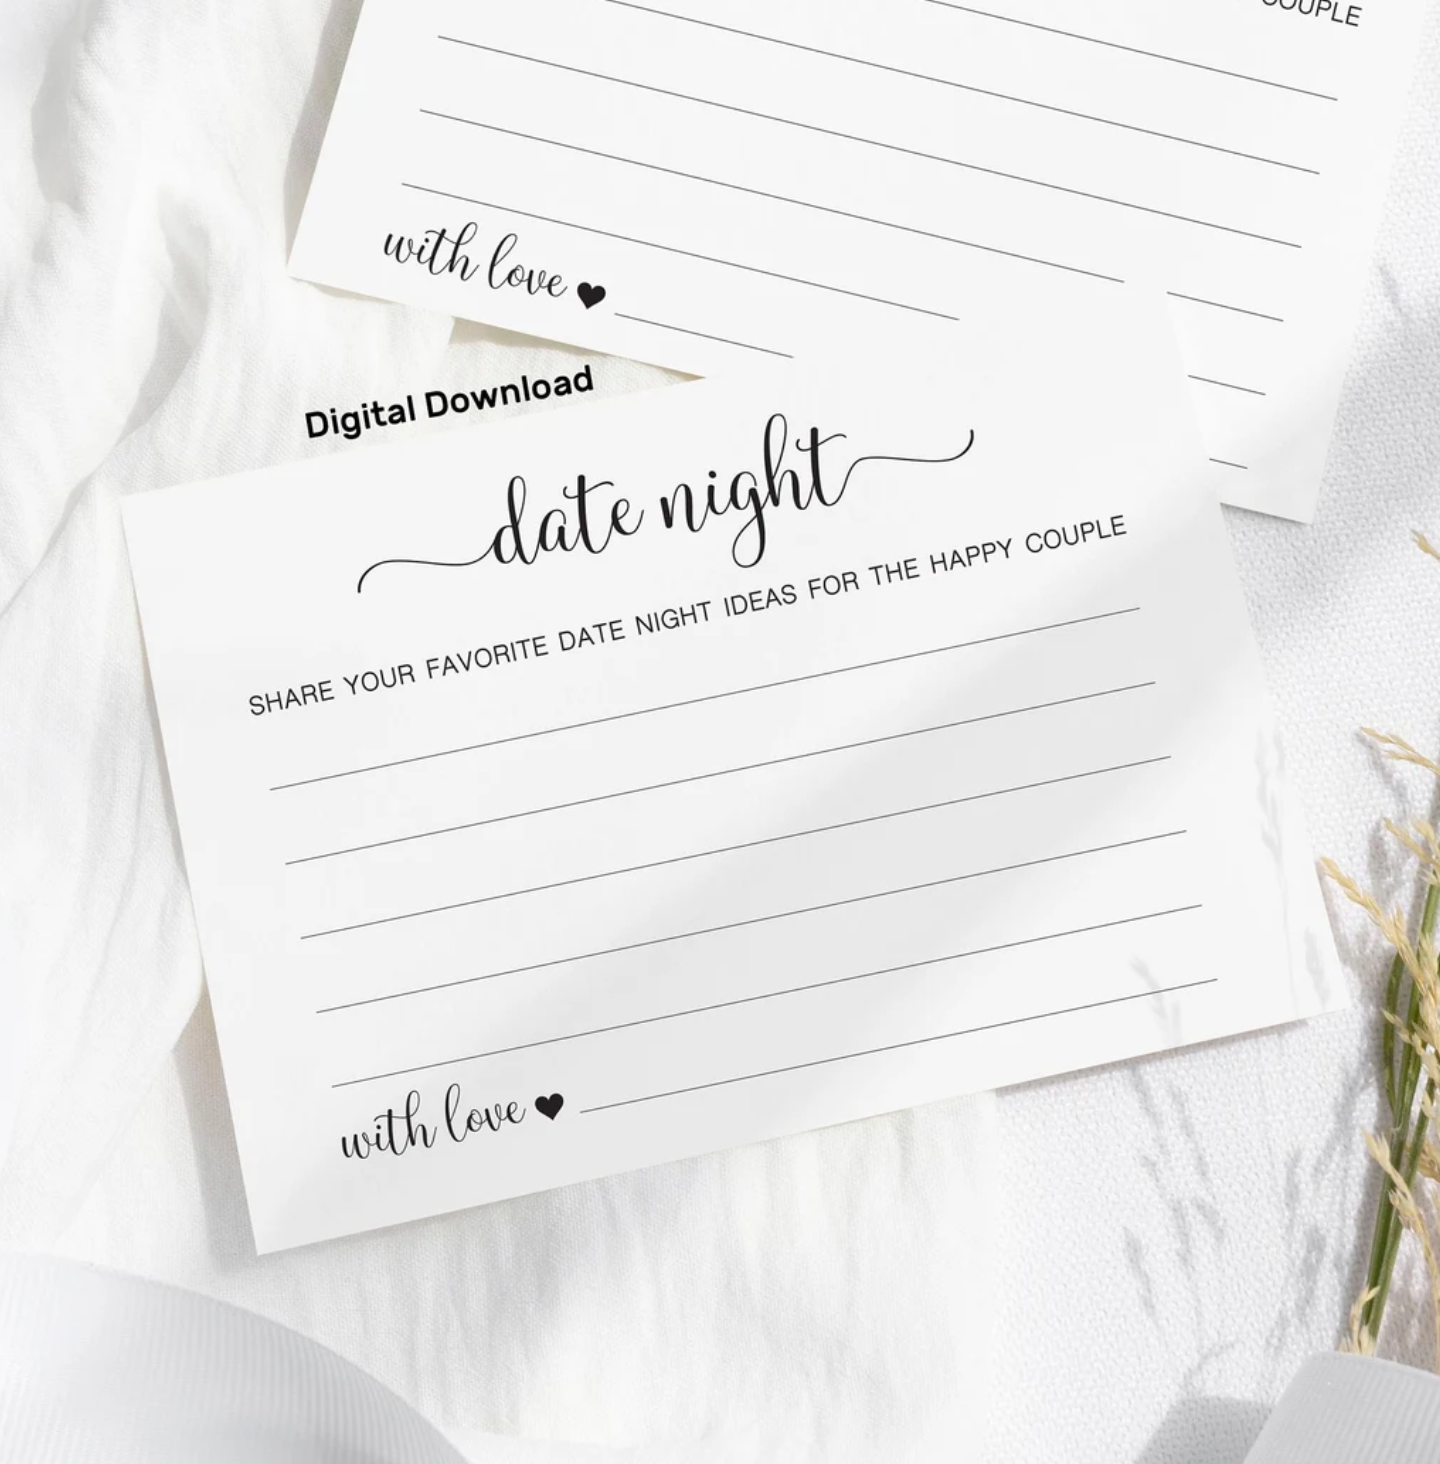 COUPLE
with love
Digital Download
date night
SHARE YOUR FAVORITE DATE NIGHT IDEAS FOR THE HAPPY COUPLE
with love